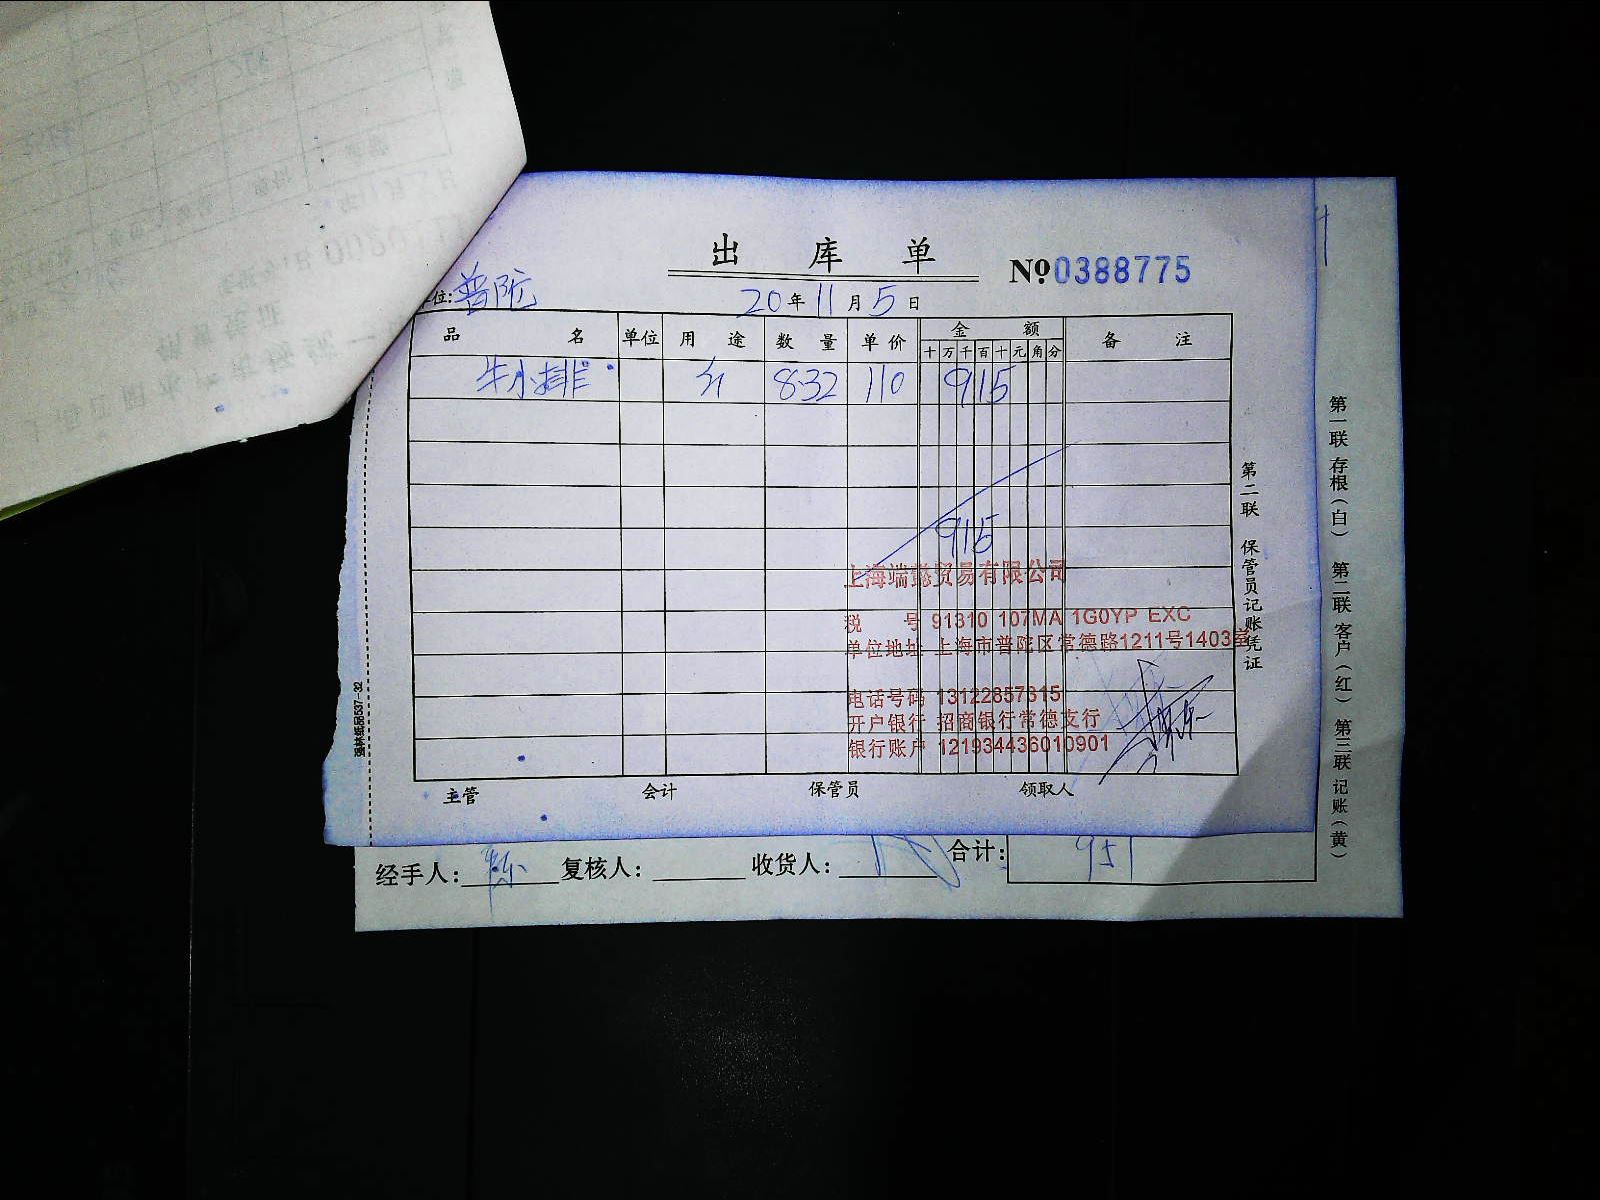 出 库 单
№0388775
位: 普陀
20年11月5日
品 名 单位 用 途 数 量 单价 金 额 备 注
十万千百十元角分
牛小排 8.32 110 915
915
上海端懿贸易有限公司
税 号 91310 107MA 1G0YP EXC
单位地址 上海市普陀区常德路1211号1403室
电话号码 13122857315
开户银行 招商银行常德支行
银行账户 121934436010901
主管 会计 保管员 领取人
第二联 保管员记账凭证
537-32
第一联 存根(白) 第二联 客户(红) 第三联 记账(黄)
经手人: 复核人: 收货人: 合计: 951